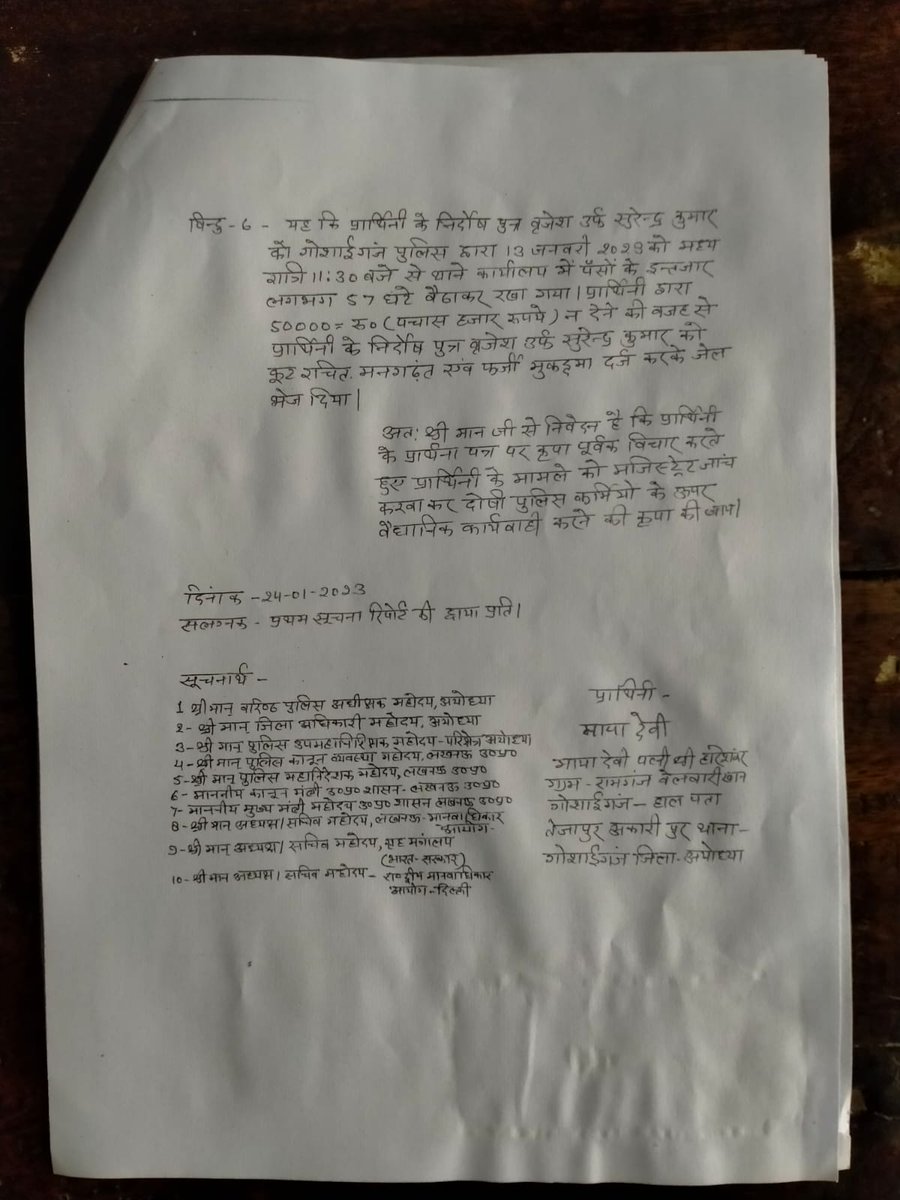 बिन्दु-6 - यह कि प्रार्थिनी के निर्दोष पुत्र वृजेश उर्फ सुरेन्द्र कुमार
को गोशाईगंज पुलिस द्वारा 13 जनवरी 2023 को मध्य
रात्रि 11:30 बजे से थाने कार्यालय में पैसों के इन्तजार
लगभग 57 घंटे बैठाकर रखा गया। प्रार्थिनी द्वारा
50000= रु० (पचास हजार रूपये) न देने की वजह से
प्रार्थिनी के निर्दोष पुत्र वृजेश उर्फ सुरेन्द्र कुमार को
कूट रचित. मनगढ़ंत एवं फर्जी मुकद्दमा दर्ज करके जेल
भेज दिया।
अतः श्री मान जी से निवेदन है कि प्रार्थिनी
के प्रार्थना पत्र पर कृपा पूर्वक विचार करते
हुए प्रार्थिनी के मामले को मजिस्ट्रेट जांच
करवा कर दोषी पुलिस कर्मियो के ऊपर
वैधानिक कार्यवाही करने की कृपा की जाय।
दिनांक - 24-01-2023
संलग्नक - प्रथम सूचना रिपोर्ट की छाया प्रति।
सूचनार्थ -
1 श्री मान् वरिष्ठ पुलिस अधीक्षक महोदय, अयोध्या
2 - श्री मान् जिला अधिकारी महोदय, अयोध्या
3 - श्री मान् पुलिस उपमहानिरिक्षक महोदय - परिक्षेत्र अयोध्या
4 - श्री मान् पुलिस कानून व्यवस्था महोदय, लखनऊ उ०प्र०
5 - श्री मान् पुलिस महानिदेशक महोदय, लखनऊ उ०प्र०
6 - माननीय कानून मंत्री उ०प्र० शासन - लखनऊ उ०प्र०
7 - माननीय मुख्य मंत्री महोदय उ०प्र० शासन लखनऊ उ०प्र०
8 - श्री मान अध्यक्ष / सचिव महोदय, लखनऊ - मानवाधिकार
आयोग -
9 - श्री मान् अध्यक्ष / सचिव महोदय, गृह मंत्रालय
(भारत - सरकार)
10 - श्री मान अध्यक्ष / सचिव महोदय - राष्ट्रीय मानवाधिकार
आयोग - दिल्ली
प्रार्थिनी -
माया देवी
माया देवी पत्नी श्री हरिशंकर
ग्राम - रामगंज बेलवारीखान
गोशाईगंज - हाल पता
तेजापुर अकारी पुर थाना -
गोशाईगंज जिला - अयोध्या